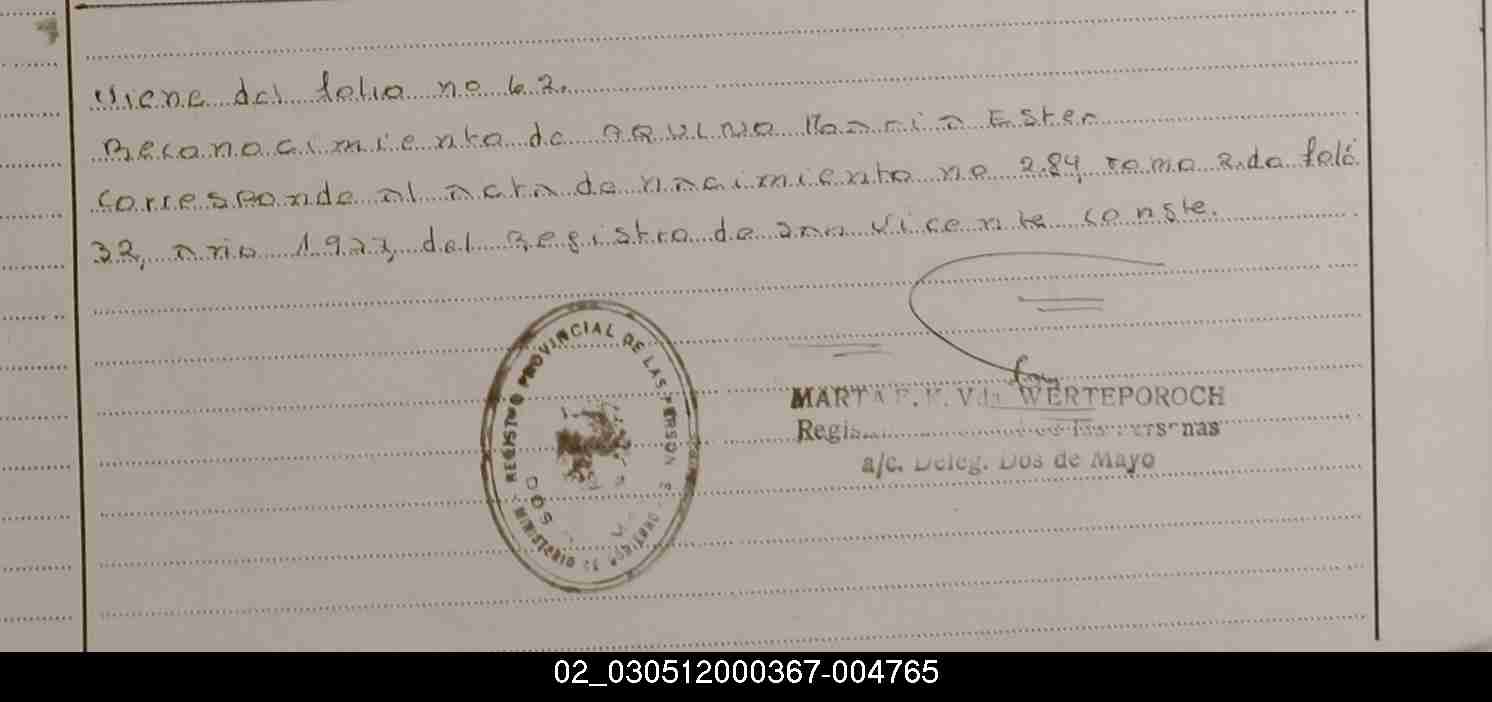 Viene del folio no 62.
Reconocimiento de AQUINO Maria Ester
Corresponde al acta de nacimiento no 284, tomo 2.do folo
32, año 1977, del Registro de San Vicente conste.
REGISTRO PROVINCIAL DE LAS PERSON
MINISTERIO
DOS
MARTA E. K. Vda WERTEPOROCH
las Personas
a/c. Deleg. Dos de Mayo
02_030512000367-004765